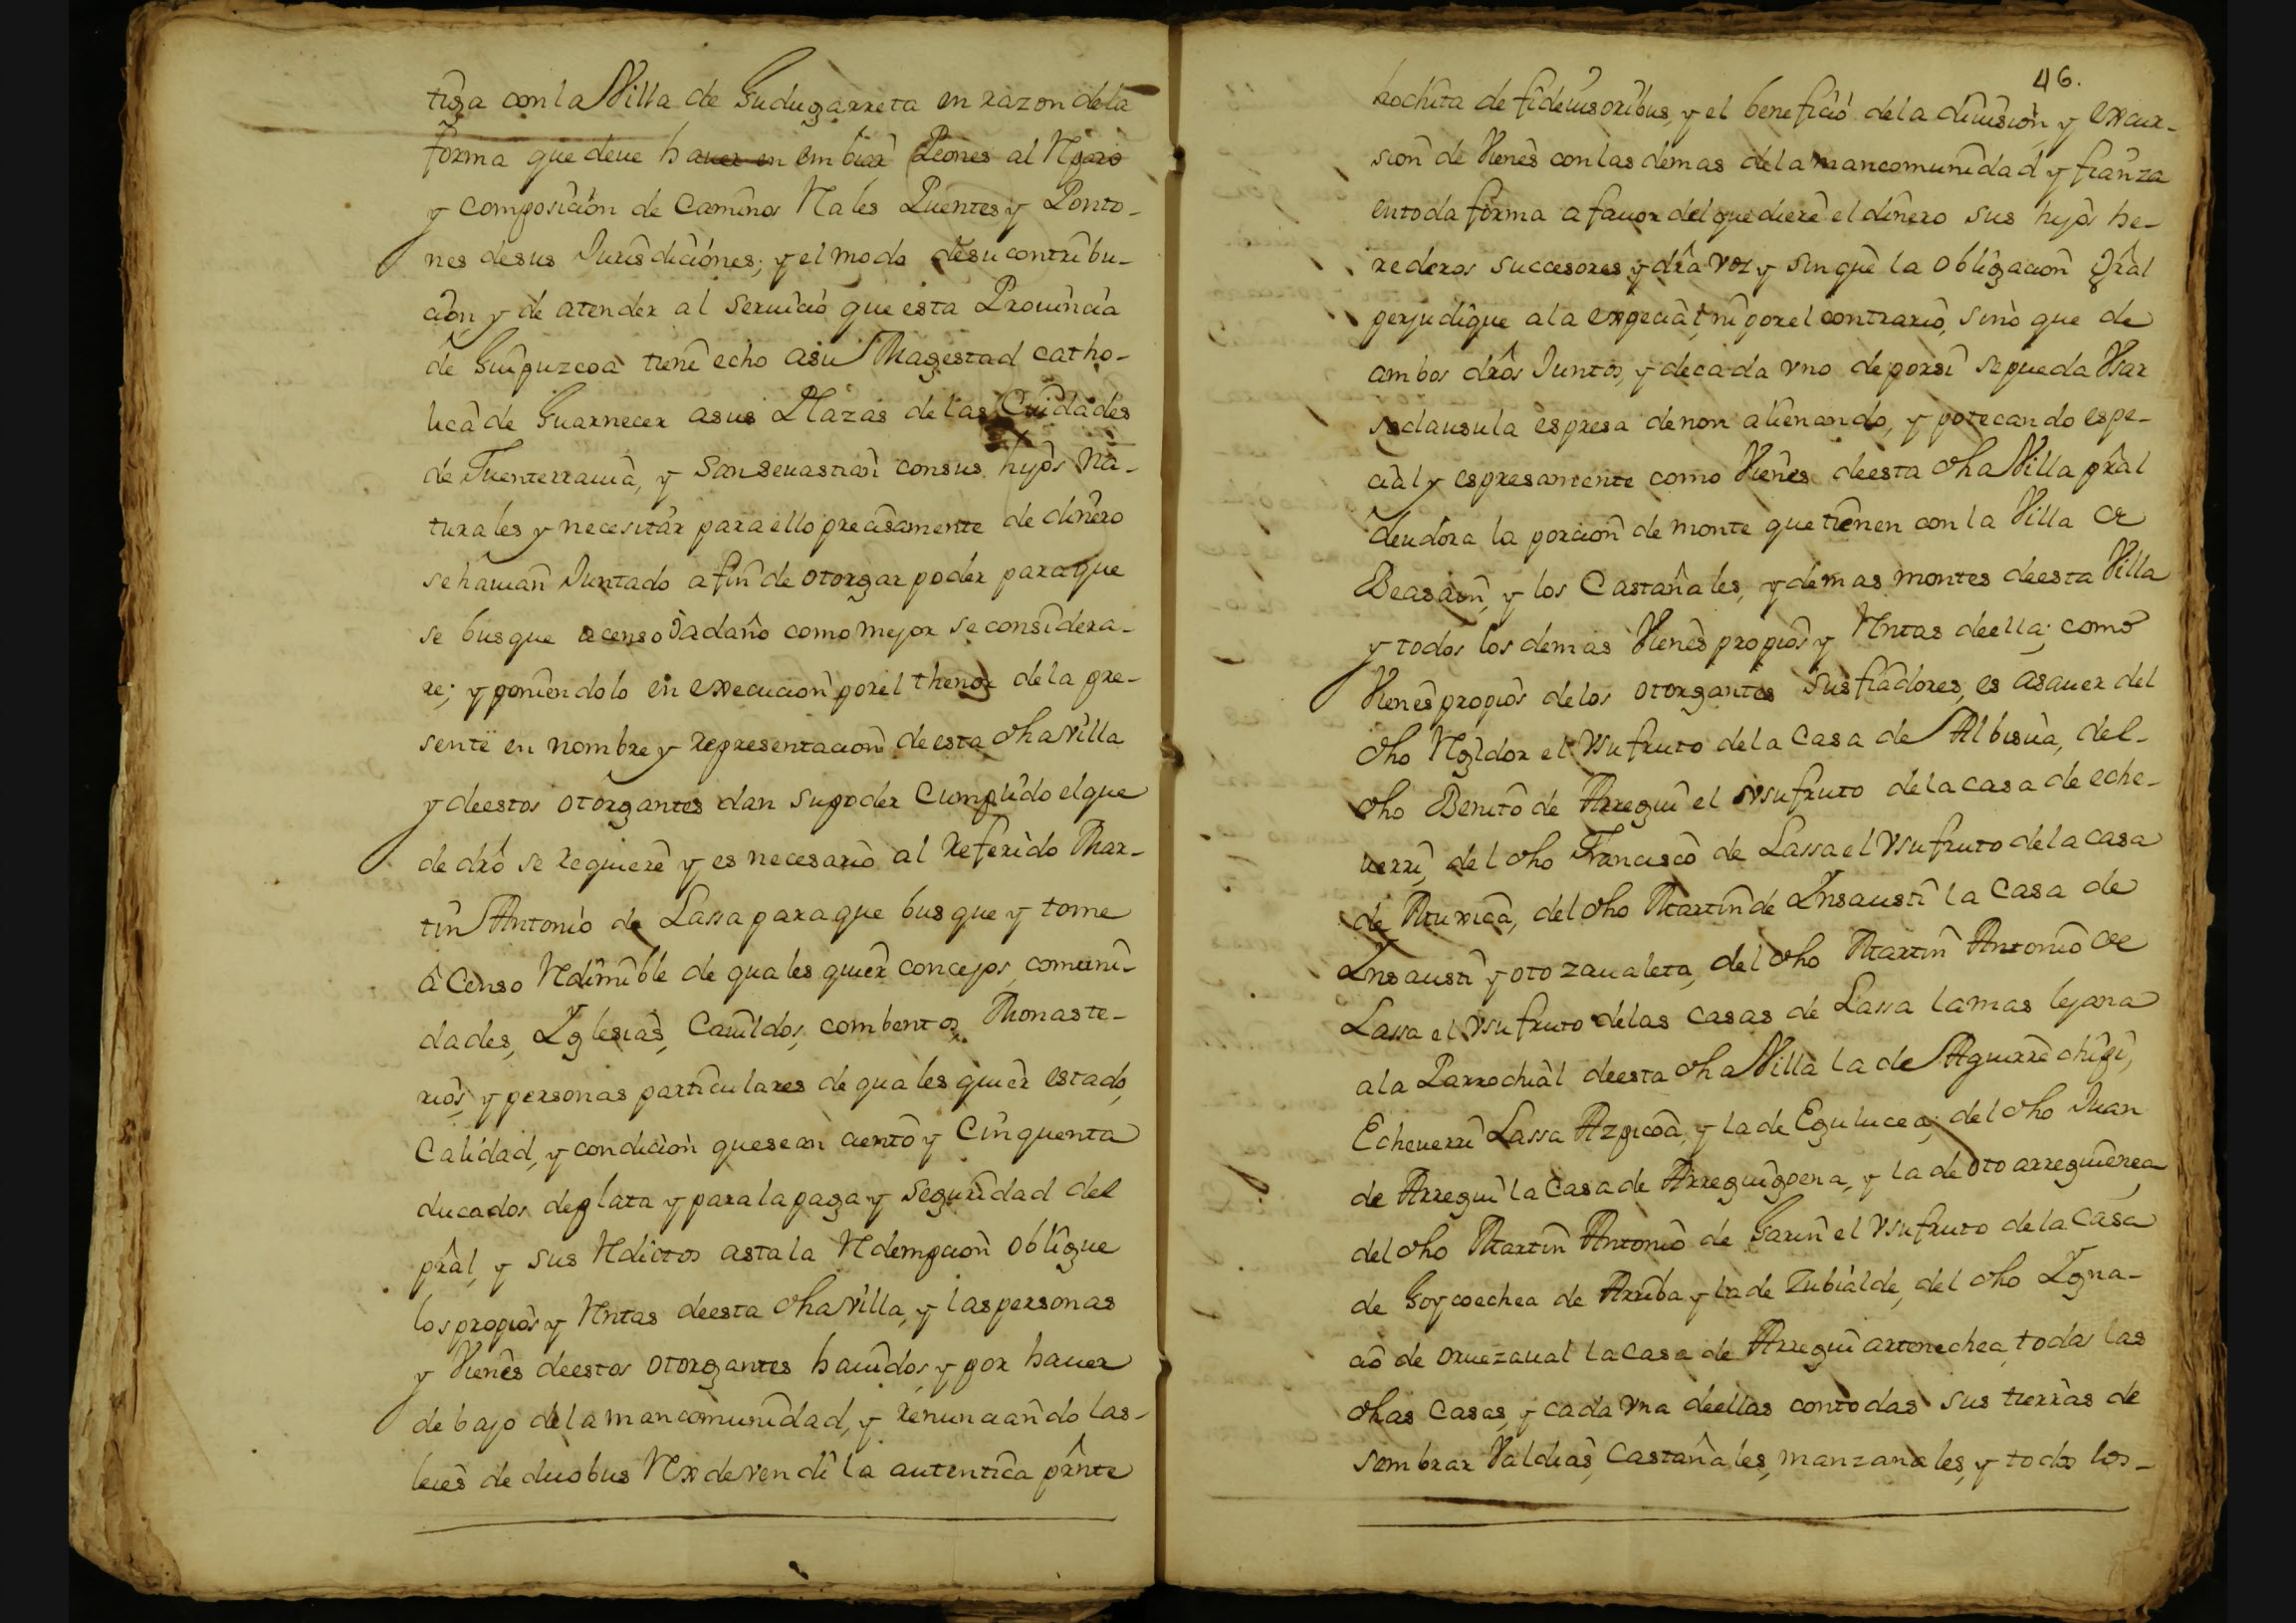 tiga con la Villa de Gudugarreta en razon dela
forma que deve haver en embiar Peones al Rparo
y composición de Caminos Rales Puentes y Ponto-
nes desus Jurisdiciónes; y el modo desu contribu-
ción, y de atender al servicio que esta Provincia
de Guipuzcoa tiene echo asu Magestad catho-
lica de Guarnecer asus Plazas de las Ciudades
de Fuenterravia, y San sevastian consus hijos na-
turales y necesitar para ello precisamente de dinero
se havian Juntado a fin de otorgar poder para que
se busque a censo ò a daño como mejor se considera-
re; y poniendolo en execucion por el thenor de la pre-
sente en nombre y representacion de esta dha villa
y de estos otorgantes dan su poder Cumplido el que
de dro se requiere y es necesario al referido Mar-
tin Antonio de Lassa para que busque y tome
à Censo Rdimible de quales quier concejos, comuni-
dades, Iglesias, Cavildos, combentos, Monaste-
rios, y personas particulares de quales quier estado,
Calidad, y condicion que sean ciento y Cinquenta
ducados de plata y para la paga y seguridad del
pral, y sus Rditos asta la Rdempcion obligue
los propios y Rntas de esta dha villa, y las personas
y Vienes de estos otorgantes havidos y por haver
de bajo de la mancomunidad, y renunciando las-
leies de duobus Rex devendi la autentica prnte
46.
hochita de fideiusoribus, y el beneficio de la divission y excur-
sion de Vienes con las demas de la mancomunidad y fianza
en toda forma a favor del que diere el dinero sus hijos he-
rederos succesores y dra voz y sin que la obligacion Gral
perjudique a la expecial ni por el contrario, sino que de
ambos dros Juntos, y de cada vno de por si se pueda Vsar
so clausula espresa de non alienando, y potecando espe-
cial y espresamente como Vienes de esta dha Villa pral
deudora la porcion de monte que tienen con la Villa de
Beasain, y los Castañales, y demas montes de esta Villa
y todos los demas Vienes propios y Rntas de ella; como
Vienes propios de los otorgantes sus fiadores, es asaver del
dho Rgidor el Vsufruto de la Casa de Albisua, del-
dho Benito de Arregui el vsufruto de la casa de eche-
verri, del dho Francisco de Lassa el Vsufruto de la casa
de Aturica, del dho Martin de Insausti la Casa de
Insausti y oto zavaleta, del dho Martin Antonio de
Lassa el Vsufruto de las casas de Lassa la mas lejana
a la Parrochial de esta dha Villa la de Aguirre chipi,
Echeverri Lassa Azpicoa, y la de Egulucea; del dho Juan
de Arregui la Casa de Arreguigoena, y la de oto arreguienea,
del dho Martin Antonio de Garin el Vsufruto de la Casa
de Goycoechea de Arriba y la de Zubialde, del dho Igna-
cio de oruezaval la casa de Arregui artenechea, todas las
dhas Casas, y cada vna de ellas con todas sus tierras de
sembrar Valdias, Castañales, manzanales, y todos los-